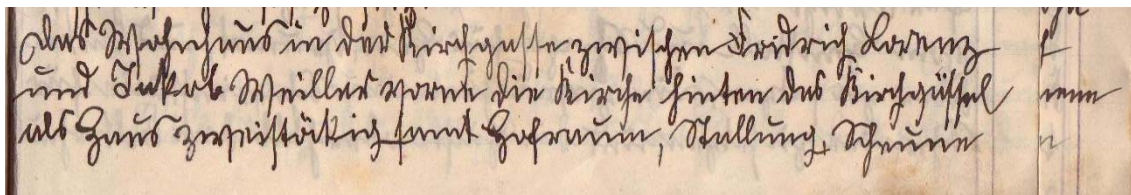 Das Wohnhaus in der Kirchgasse zwischen Fridrich Lorenz
und Jakob Weiller vorne die Kirche hinten das Kirchgässel
als Haus zweistökig samt Hofraum, Stallung, Scheune